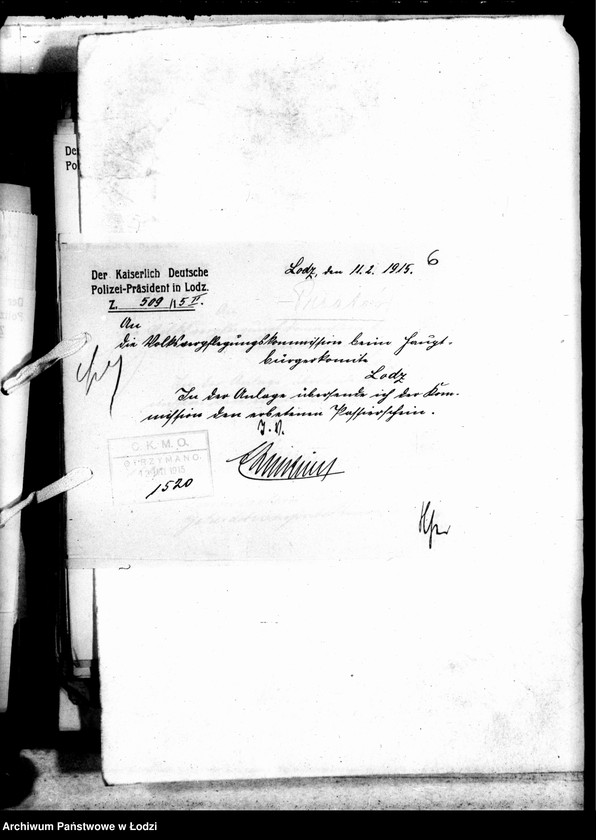 De
Po
Der Kaiserlich Deutsche
Polizei-Präsident in Lodz.
Z. 509/15 II.
Lodz, den 11.2. 1915.
6
An
die Volksverpflegungskommission beim Haupt-
bürgerkomite
Lodz
In der Anlage übersende ich der Kom-
mission den erbetenen Passierschein.
J. V.
G. K. M. O.
OTRZYMANO.
1915
1520
Archiwum Państwowe w Łodzi